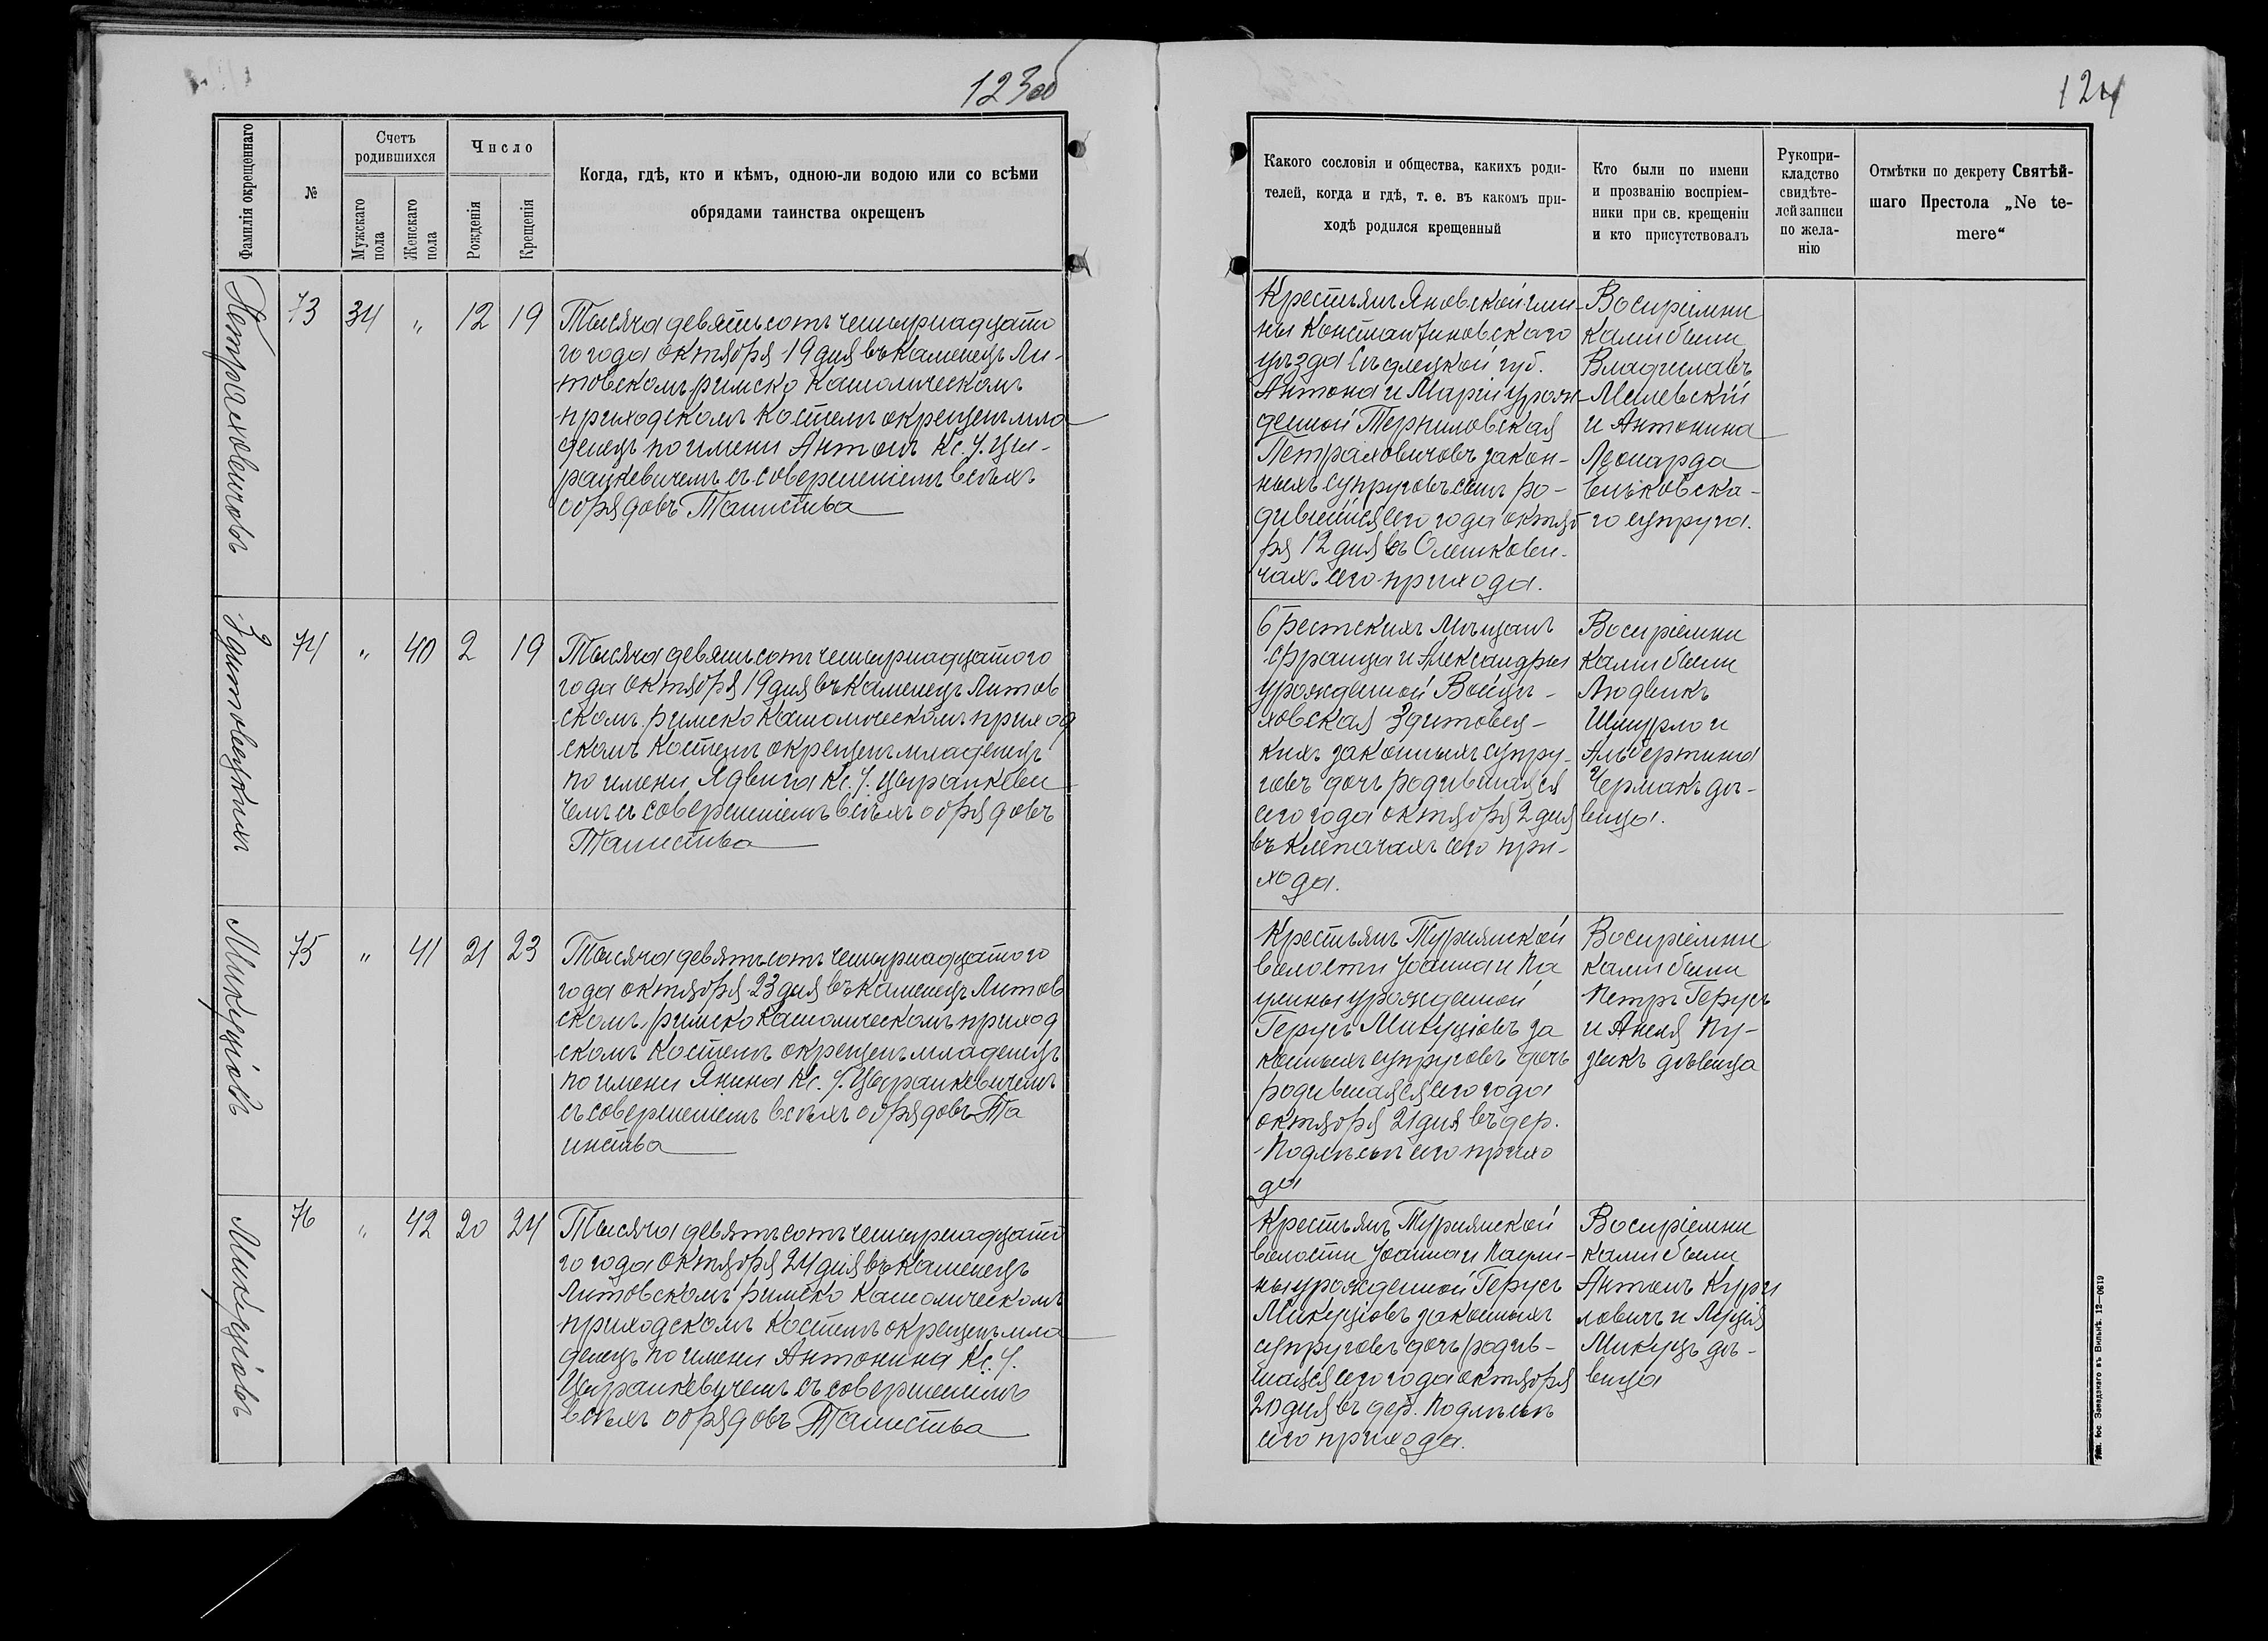 123об
Фамилія окрещеннаго
№
Счетъ родившихся
Мужскаго пола
Женскаго пола
Число
Рожденія
Крещенія
Когда, гдѣ, кто и кѣмъ, одною-ли водою или со всѣми
обрядами таинства окрещенъ
Петраховичовъ
73
34
„
12
19
Тысяча девятьсотъ четырнадцато
го года октября 19 дня въ Каменецъ Ли-
товскомъ римско католическомъ
приходскомъ костелѣ окрещенъ мла
денецъ по имени Антонъ Кс. У. Ци-
ранкевичемъ съ совершеніемъ всѣхъ
обрядовъ Таинства
Здитовецкихъ
74
„
40
2
19
Тысяча девятьсотъ четырнадцатого
года октября 19 дня въ Каменецъ Литов
скомъ римско католическомъ приход
скомъ костелѣ окрещенъ младенецъ
по имени Ядвига Кс. У. Циранкеви
чемъ съ совершеніемъ всѣхъ обрядовъ
Таинства
Микуціовъ
75
„
41
21
23
Тысяча девятьсотъ четырнадцатого
года октября 23 дня въ Каменецъ Литов
скомъ римско католическомъ приход
скомъ костелѣ окрещенъ младенецъ
по имени Янина Кс. У. Циранкевичемъ
съ совершеніемъ всѣхъ обрядовъ Та
инства
Микуціовъ
76
„
42
20
24
Тысяча девятьсотъ четырнадцато
го года октября 24 дня въ Каменецъ
Литовскомъ римско католическомъ
приходскомъ костелѣ окрещенъ мла
денецъ по имени Антонина Кс. У.
Циранкевичемъ съ совершеніемъ
всѣхъ обрядовъ Таинства
124
Какого сословія и общества, какихъ роди-
телей, когда и гдѣ, т. е. въ какомъ при-
ходѣ родился крещенный
Кто были по имени
и прозванію воспріем-
ники при св. крещеніи
и кто присутствовалъ
Рукопри-
кладство
свидѣте-
лей записи
по жела-
нію
Отмѣтки по декрету Святѣй-
шаго Престола „Ne te-
mere“
Крестьянъ Яновской гми-
ны Константиновскаго
уѣзда Сѣдлецкой губ.
Антона и Маріи урож-
денной Терпиловская
Петраховичовъ закон-
ныхъ супруговъ сынъ ро-
дившійся сего года октяб
ря 12 дня въ Олешкови-
чахъ сего прихода.
Воспріемни
ками были
Владиславъ
Милевскій
и Антонина
Леонарда
Виъковска-
го супруга.
Брестскихъ Мѣщанъ
Франца и Александры
урожденной Войцѣ-
ховская Здитовец-
кихъ законныхъ супру-
говъ дочь родившаяся
сего года октября 2 дня
въ Клепачахъ сего при-
хода.
Воспріемни
ками были
Людвикъ
Шмурло и
Альбертина
Чермакъ дѣ-
вица.
Крестьянъ Турнянской
волости Іоанна и Па
улины урожденной
Герусъ Микуціовъ за
конныхъ супруговъ дочь
родившаяся сего года
октября 21 дня въ дер.
Подлѣсье сего прихо
да
Воспріемни
ками были
Петръ Герусъ
и Анеля Пу-
зыкъ дѣвица
Крестьянъ Турнянской
волости Іоанна и Паули-
ны урожденной Герусъ
Микуціовъ законныхъ
супруговъ дочь родив-
шаяся сего года октября
20 дня въ дер. Подлѣсье
сего прихода.
Воспріемни
ками были
Антонъ Кури
ловичъ и Луція
Микуцъ дѣ-
вица
Тип. Іос. Завадзкаго въ Вильнѣ. 12—0619